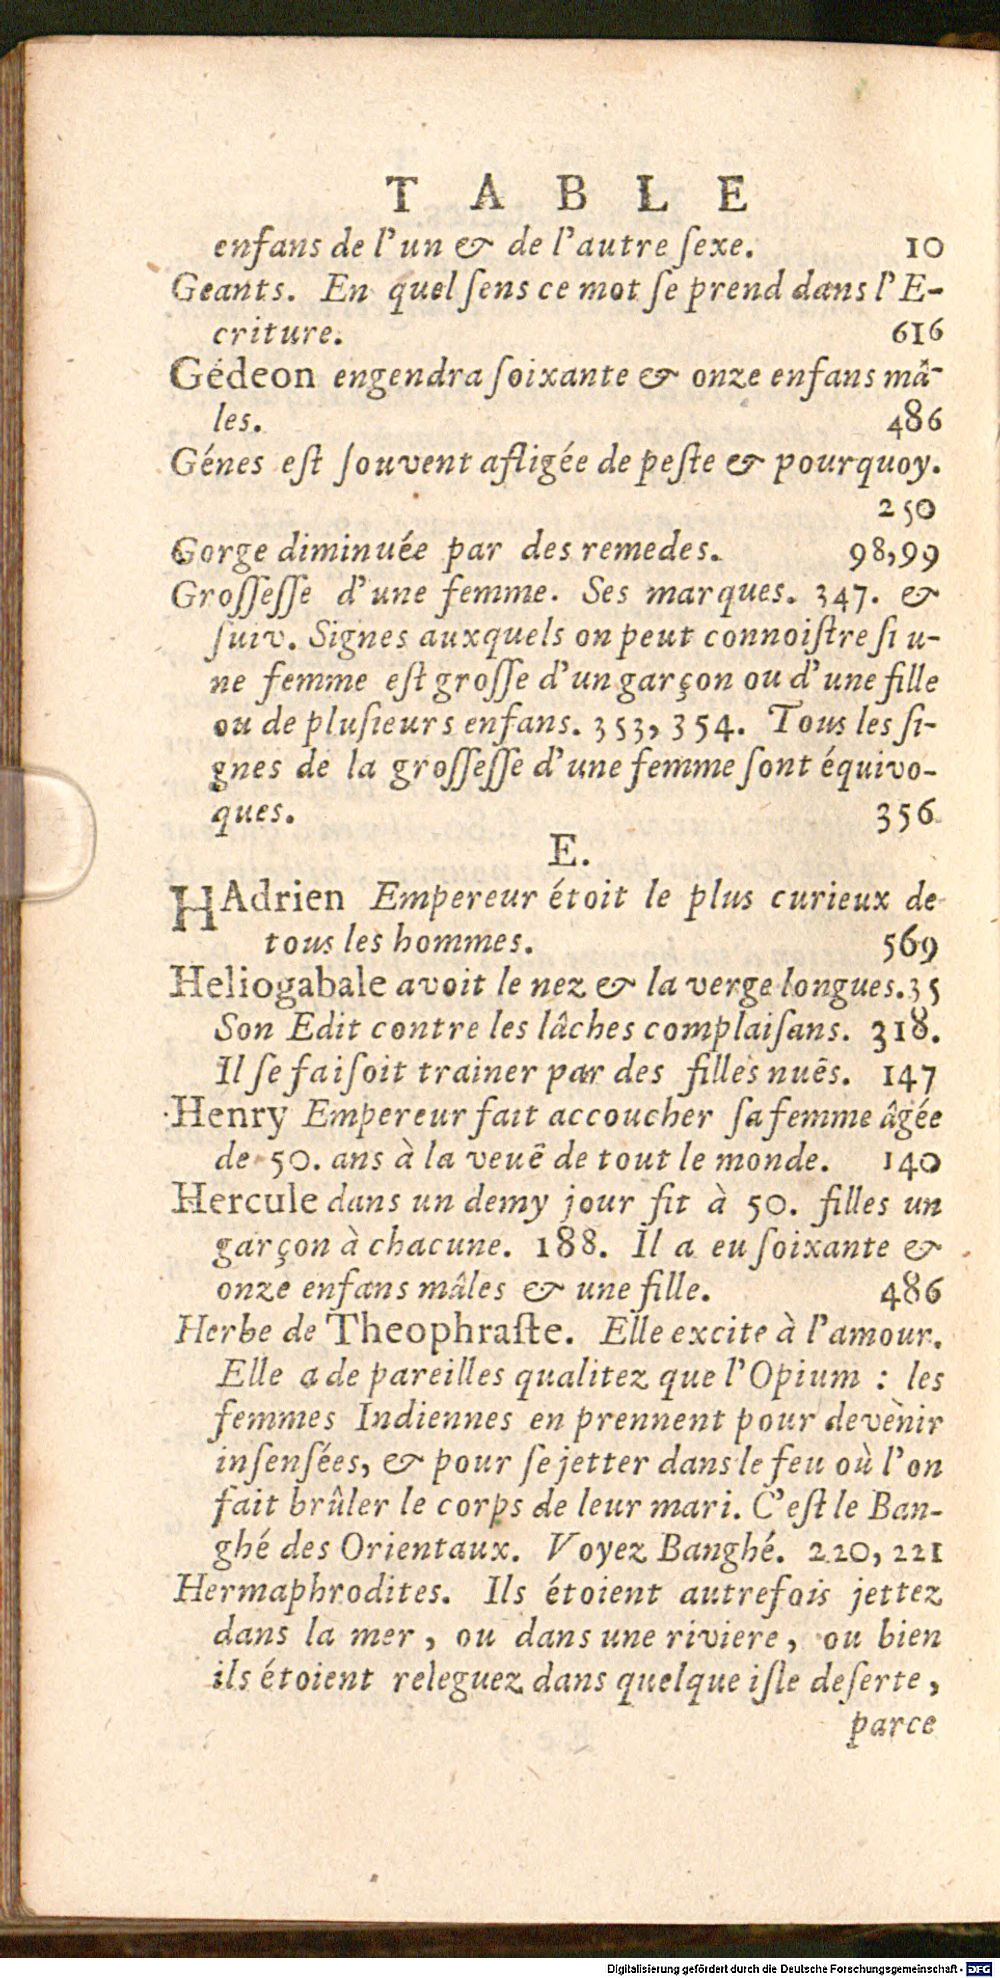 TABLE
enfans de l'un & de l'autre ſexe. 10
Geants. En quel ſens ce mot ſe prend dans l'E-
criture. 616
Gédeon engendra ſoixante & onze enfans mâ-
les. 486
Génes eſt ſouvent afligée de peſte & pourquoy.
250
Gorge diminuée par des remedes. 98,99
Groſſeſſe d'une femme. Ses marques. 347. &
ſuiv. Signes auxquels on peut connoiſtre ſi u-
ne femme eſt groſſe d'un garçon ou d'une fille
ou de pluſieurs enfans. 353, 354. Tous les ſi-
gnes de la groſſeſſe d'une femme ſont équivo-
ques. 356
E.
HAdrien Empereur étoit le plus curieux de
tous les hommes. 569
Heliogabale avoit le nez & la verge longues. 35
Son Edit contre les lâches complaiſans. 318.
Il ſe faiſoit trainer par des filles nuës. 147
Henry Empereur fait accoucher ſa femme âgée
de 50. ans à la veuë de tout le monde. 140
Hercule dans un demy jour fit à 50. filles un
garçon à chacune. 188. Il a eu ſoixante &
onze enfans mâles & une fille. 486
Herbe de Theophraſte. Elle excite à l'amour.
Elle a de pareilles qualitez que l'Opium : les
femmes Indiennes en prennent pour devenir
inſenſées, & pour ſe jetter dans le feu où l'on
fait brûler le corps de leur mari. C'eſt le Ban-
ghé des Orientaux. Voyez Banghé. 220, 221
Hermaphrodites. Ils étoient autrefois jettez
dans la mer, ou dans une riviere, ou bien
ils étoient releguez dans quelque iſle deſerte,
parce
Digitalisierung gefördert durch die Deutsche Forschungsgemeinschaft - DFG